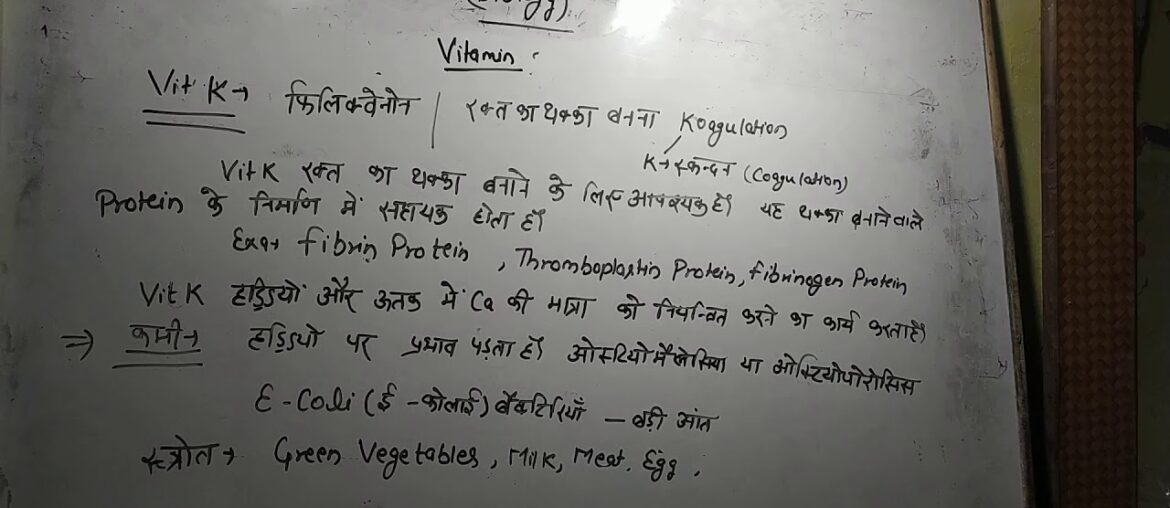 Vitamin :
Vit K → फिलिक्वेनोन | रक्त का थक्का बनना Koggulation
K → स्कन्दन (Cogulation)
Vit K रक्त का थक्का बनाने के लिए आवश्यक है। यह थक्का बनाने वाले
Protein के निर्माण में सहायक होता है।
Exa→ fibrin Protein , Thromboplastin Protein, fibrinogen Protein
Vit K हड्डियों और ऊतक में Ca की मात्रा को नियन्त्रित करने का कार्य करता है।
⇒ कमी→ हड्डियो पर प्रभाव पड़ता है। ओस्टियोमैलेसिया या ओस्टियोपोरोसिस
E-Coli (ई-कोलाई) बैक्टिरियाँ – बड़ी आंत
स्त्रोत → Green Vegetables, Milk, Meat, Egg,